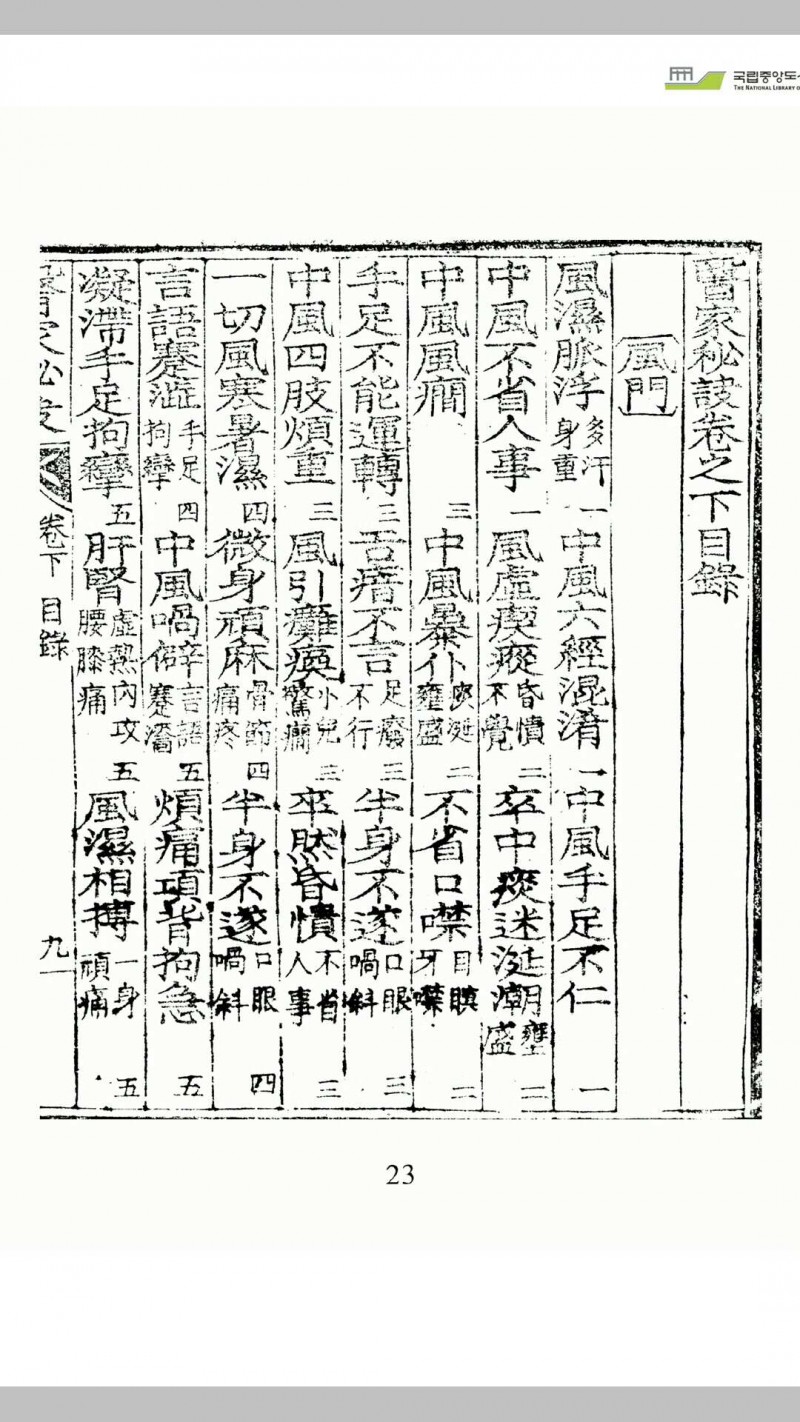 국립중앙도
THE NATIONAL LIBRARY O
醫家秘訣卷之下目錄
風門
風濕脈浮 多汗身重 一 中風六經混淆 一 中風手足不仁 一
中風不省人事 一 風虛瘈瘲 昏憒不覺 二 卒中痰迷涎潮 壅盛 二
中風風癎 三 中風暴仆 痰涎壅盛 二 不省口噤 目瞋牙噤 二
手足不能運轉 三 舌瘖不言 足廢不行 三 半身不遂 口眼喎斜 三
中風四肢煩重 三 風引癱瘓 小兒驚癎 三 卒然昏憒 不省人事 三
一切風寒暑濕 四 微身頑麻 骨節痛疼 四 半身不遂 口眼喎斜 四
言語蹇澁 手足拘攣 四 中風喎僻 言語蹇澁 五 煩痛項背拘急 五
凝滯手足拘攣 五 肝腎 虛熱內攻腰膝痛 五 風濕相搏 一身頑痛 五
醫家秘訣 卷下 目錄 九一
23